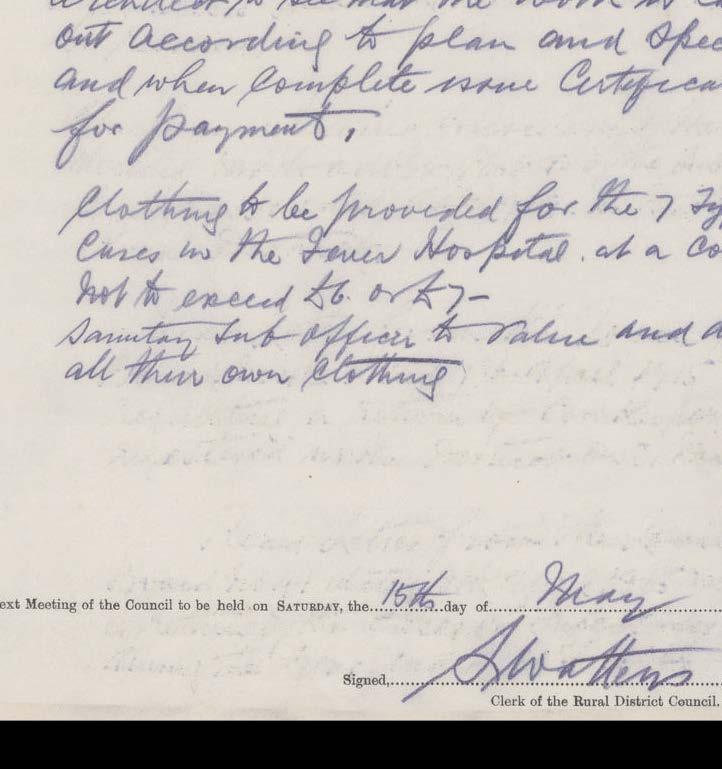 Architect to see that the work is
out according to plan and Spec
and when Complete issue Certifica
for payment,
Clothing to be provided for the 7 Ty
Cases in the Fever Hospital. at a Co
not to exceed £6. or £7-
Sanitary Sub Officer to value and d
all their own Clothing
ext Meeting of the Council to be held on SATURDAY, the 15th day of May
Signed, S Watters
Clerk of the Rural District Council.